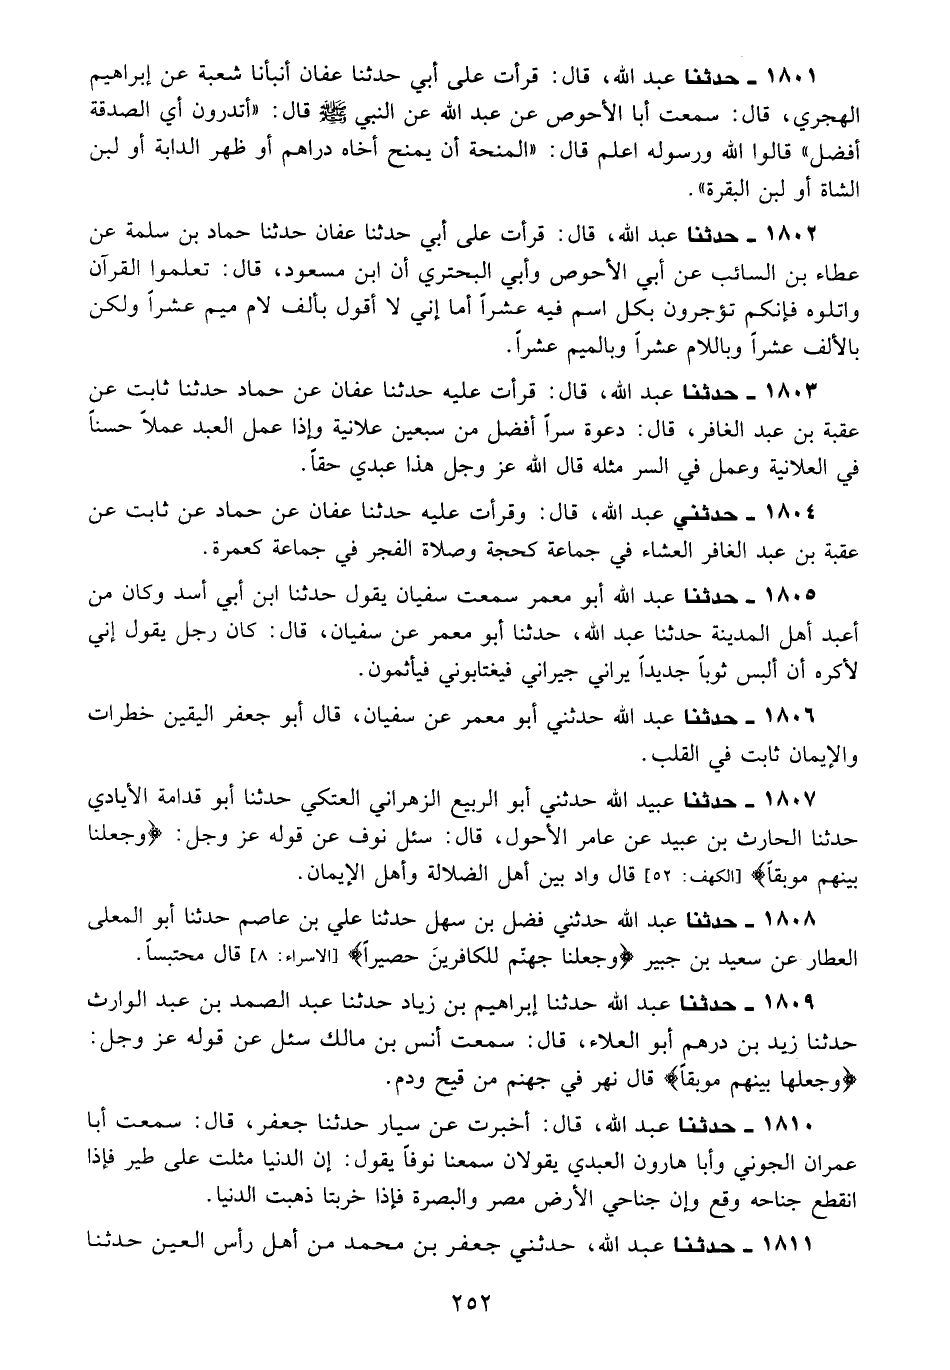 ١٨٠١ ـ حدثنا عبد الله، قال: قرأت على أبي حدثنا عفان أنبأنا شعبة عن إبراهيم
الهجري، قال: سمعت أبا الأحوص عن عبد الله عن النبي ﷺ قال: «أتدرون أي الصدقة
أفضل» قالوا الله ورسوله اعلم قال: «المنحة أن يمنح أخاه دراهم أو ظهر الدابة أو لبن
الشاة أو لبن البقرة».
١٨٠٢ ـ حدثنا عبد الله، قال: قرأت على أبي حدثنا عفان حدثنا حماد بن سلمة عن
عطاء بن السائب عن أبي الأحوص وأبي البحتري أن ابن مسعود، قال: تعلموا القرآن
واتلوه فإنكم تؤجرون بكل اسم فيه عشراً أما إني لا أقول بألف لام ميم عشراً ولكن
بالألف عشراً وباللام عشراً وبالميم عشراً.
١٨٠٣ ـ حدثنا عبد الله، قال: قرأت عليه حدثنا عفان عن حماد حدثنا ثابت عن
عقبة بن عبد الغافر، قال: دعوة سراً أفضل من سبعين علانية وإذا عمل العبد عملاً حسناً
في العلانية وعمل في السر مثله قال الله عز وجل هذا عبدي حقاً.
١٨٠٤ ـ حدثني عبد الله، قال: وقرأت عليه حدثنا عفان عن حماد عن ثابت عن
عقبة بن عبد الغافر العشاء في جماعة كحجة وصلاة الفجر في جماعة كعمرة.
١٨٠٥ ـ حدثنا عبد الله أبو معمر سمعت سفيان يقول حدثنا ابن أبي أسد وكان من
أعبد أهل المدينة حدثنا عبد الله، حدثنا أبو معمر عن سفيان، قال: كان رجل يقول إني
لأكره أن ألبس ثوباً جديداً يراني جيراني فيغتابوني فيأثمون.
١٨٠٦ ـ حدثنا عبد الله حدثني أبو معمر عن سفيان، قال أبو جعفر اليقين خطرات
والإيمان ثابت في القلب.
١٨٠٧ ـ حدثنا عبيد الله حدثني أبو الربيع الزهراني العتكي حدثنا أبو قدامة الأيادي
حدثنا الحارث بن عبيد عن عامر الأحول، قال: سئل نوف عن قوله عز وجل: ﴿وجعلنا
بينهم موبقاً﴾ [الكهف: ٥٢] قال واد بين أهل الضلالة وأهل الإيمان.
١٨٠٨ ـ حدثنا عبد الله حدثني فضل بن سهل حدثنا علي بن عاصم حدثنا أبو المعلى
العطار عن سعيد بن جبير ﴿وجعلنا جهنّم للكافرينَ حصيراً﴾ [الاسراء: ٨] قال محتبساً.
١٨٠٩ ـ حدثنا عبد الله حدثنا إبراهيم بن زياد حدثنا عبد الصمد بن عبد الوارث
حدثنا زيد بن درهم أبو العلاء، قال: سمعت أنس بن مالك سئل عن قوله عز وجل:
﴿وجعلها بينهم موبقاً﴾ قال نهر في جهنم من قيح ودم.
١٨١٠ ـ حدثنا عبد الله، قال: أخبرت عن سيار حدثنا جعفر، قال: سمعت أبا
عمران الجوني وأبا هارون العبدي يقولان سمعنا نوفاً يقول: إن الدنيا مثلت على طير فإذا
انقطع جناحه وقع وإن جناحي الأرض مصر والبصرة فإذا خربتا ذهبت الدنيا.
١٨١١ ـ حدثنا عبد الله، حدثني جعفر بن محمد من أهل رأس العين حدثنا
٢٥٢